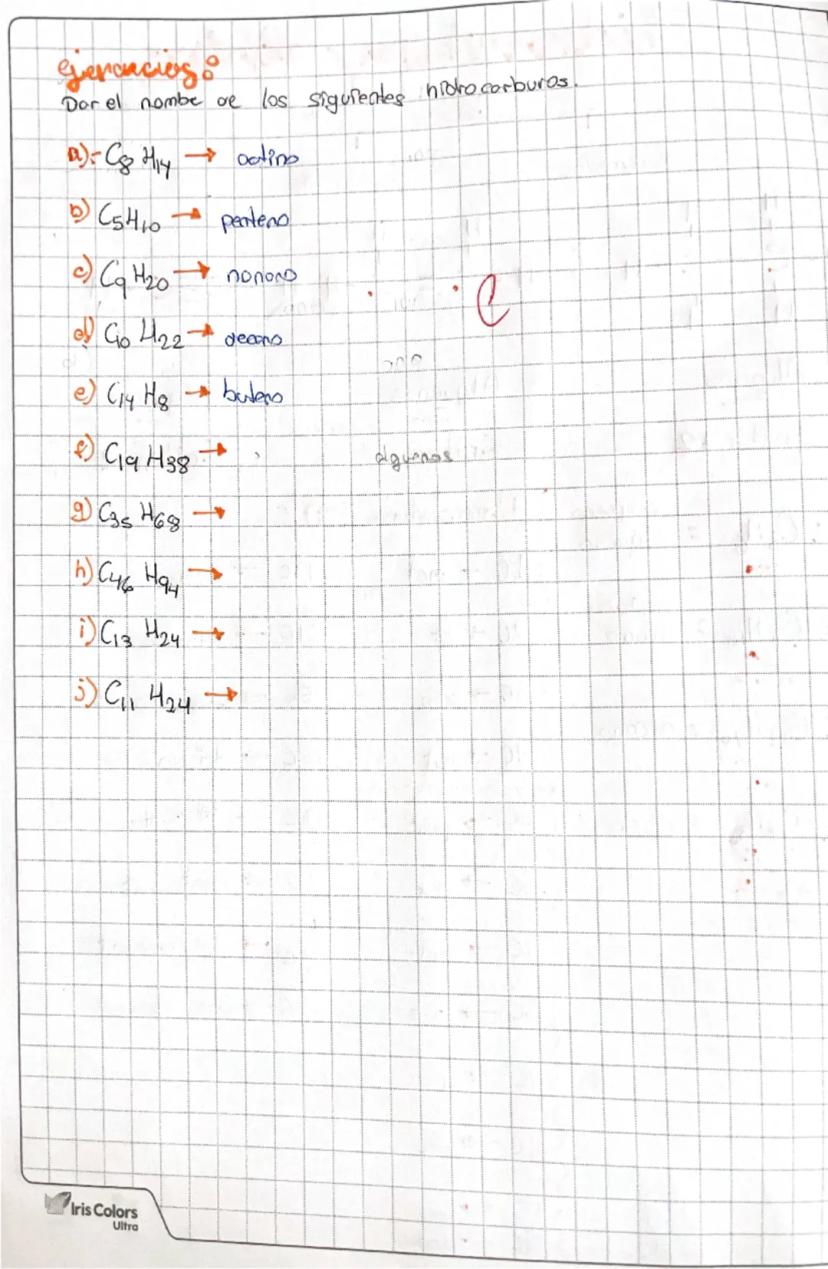 ejercicios:
Dar el nombe de los siguientes hidrocarburos.
a):- C8 H14 → octino
b) C5H10 → penteno
c) C9 H20 → nonano
d) C10 H22 → decano
e) C14 H8 → buteno
f) C19 H38 →
algunas
g) C35 H68 →
h) C46 H94 →
i) C13 H24 →
j) C11 H24 →
Iris Colors
Ultra